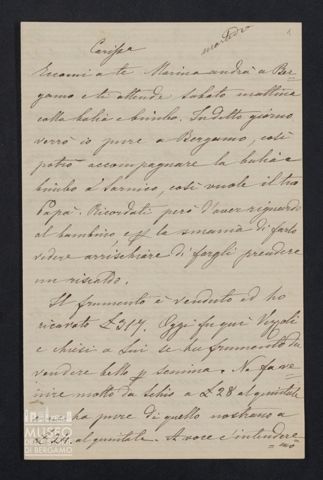 martedì
1
Carissa
Eccomi a te Marina andrà a Ber-
gamo e te attende sabato mattina
colla balia e bimbo. In detto giorno
verrò io pure a Bergamo, così
potrò accompagnare la balia e
bimbo a Sarnico, così vuole il tuo
Papà. Ricordati però d'aver riguardo
al bambino, e p la smania di farlo
vedere arrischiare di fargli prendere
un riscaldo.
Il frumento è venduto ed ho
ricavato £ 917. Oggi fu qui
e chiesi a Lui se ha frumento da
vendere bello p semina. Ne fa ve-
nire molto da Schio a £ 28 al quintale
ha pure di quello nostrano a
£ al quintale. A voce c'intendere-
mo
MUSEO
DI BERGAMO